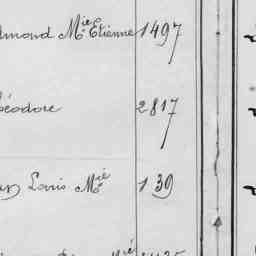 dmond M^ie Etienne 1497
éodore 2817
Louis M^ie 139